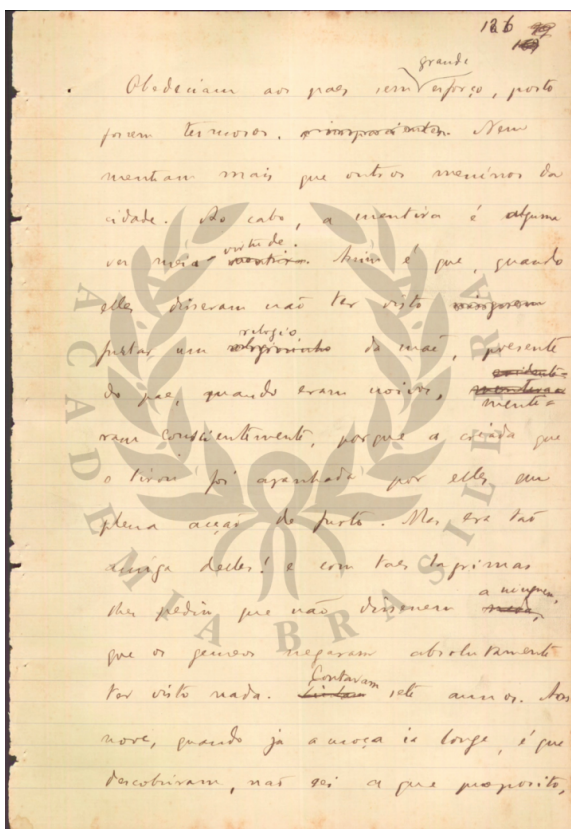 126
grande
Obedeciam aos paes sem esforço, posto
fossem teimosos. Nem
mentiam mais que outros meninos da
cidade. Ao cabo, a mentira é alguma
vez meia virtude. Assim é que, quando
elles disseram não ter visto
furtar um relogio da mãe, presente
do pae, quando eram noivos, mentiram
ram conscientemente, porque a criada que
o tirou foi apanhada por elles em
plena acção de furto. Mas era tão
amiga delles! e com taes lagrimas
lhes pediu que não dissessem a ninguem,
que os gemeos negaram absolutamente
ter visto nada. Contavam sete annos. Aos
nove, quando já a moça ia longe, é que
descobriram, não sei a que proposito,
ACADEMIA BRASILEIRA